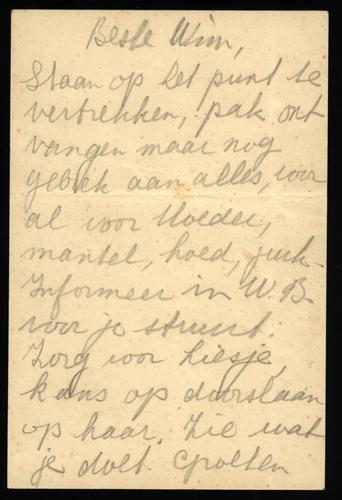 Beste Wim,
Staan op het punt te
vertrekken, pak ont
vangen maar nog
gebrek aan alles, voor
al voor Moeder,
mantel, hoed, jurk.
Informeer in W.B.
voor je stuurt.
Zorg voor Liesje,
kans op doorslaan
op haar. Zie wat
je doet. Groeten